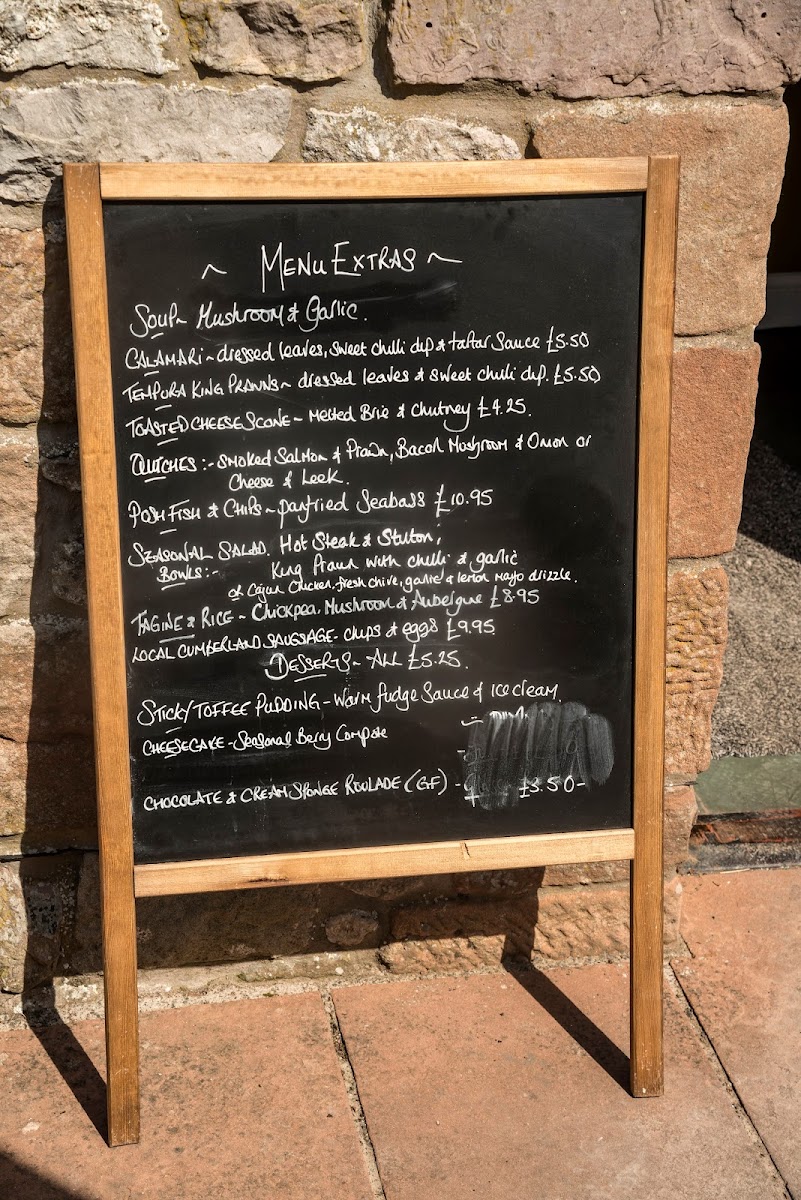 ~ MENU EXTRAS ~
SOUP~ Mushroom & Garlic.
CALAMARI ~ dressed leaves, sweet chilli dip & tartar sauce £5.50
TEMPURA KING PRAWNS ~ dressed leaves & sweet chilli dip. £5.50
TOASTED CHEESE SCONE - Melted Brie & Chutney £4.25.
QUICHES :- Smoked Salmon & Prawn, Bacon Mushroom & Onion or
Cheese & Leek.
POSH FISH & CHIPS ~ panfried Seabass £10.95
SEASONAL SALAD. Hot Steak & Stilton,
BOWLS:- King Prawn with chilli & garlic
or Cajun Chicken, fresh chive, garlic & lemon mayo drizzle.
TAGINE & RICE ~ Chickpea, Mushroom & Aubergine £8.95
LOCAL CUMBERLAND SAUSAGE - chips & eggs £9.95
DESSERTS ~ ALL £5.25.
STICKY TOFFEE PUDDING - Warm fudge Sauce & ice cream.
CHEESECAKE - Seasonal Berry Compote
CHOCOLATE & CREAM SPONGE ROULADE (GF) - £3.50-